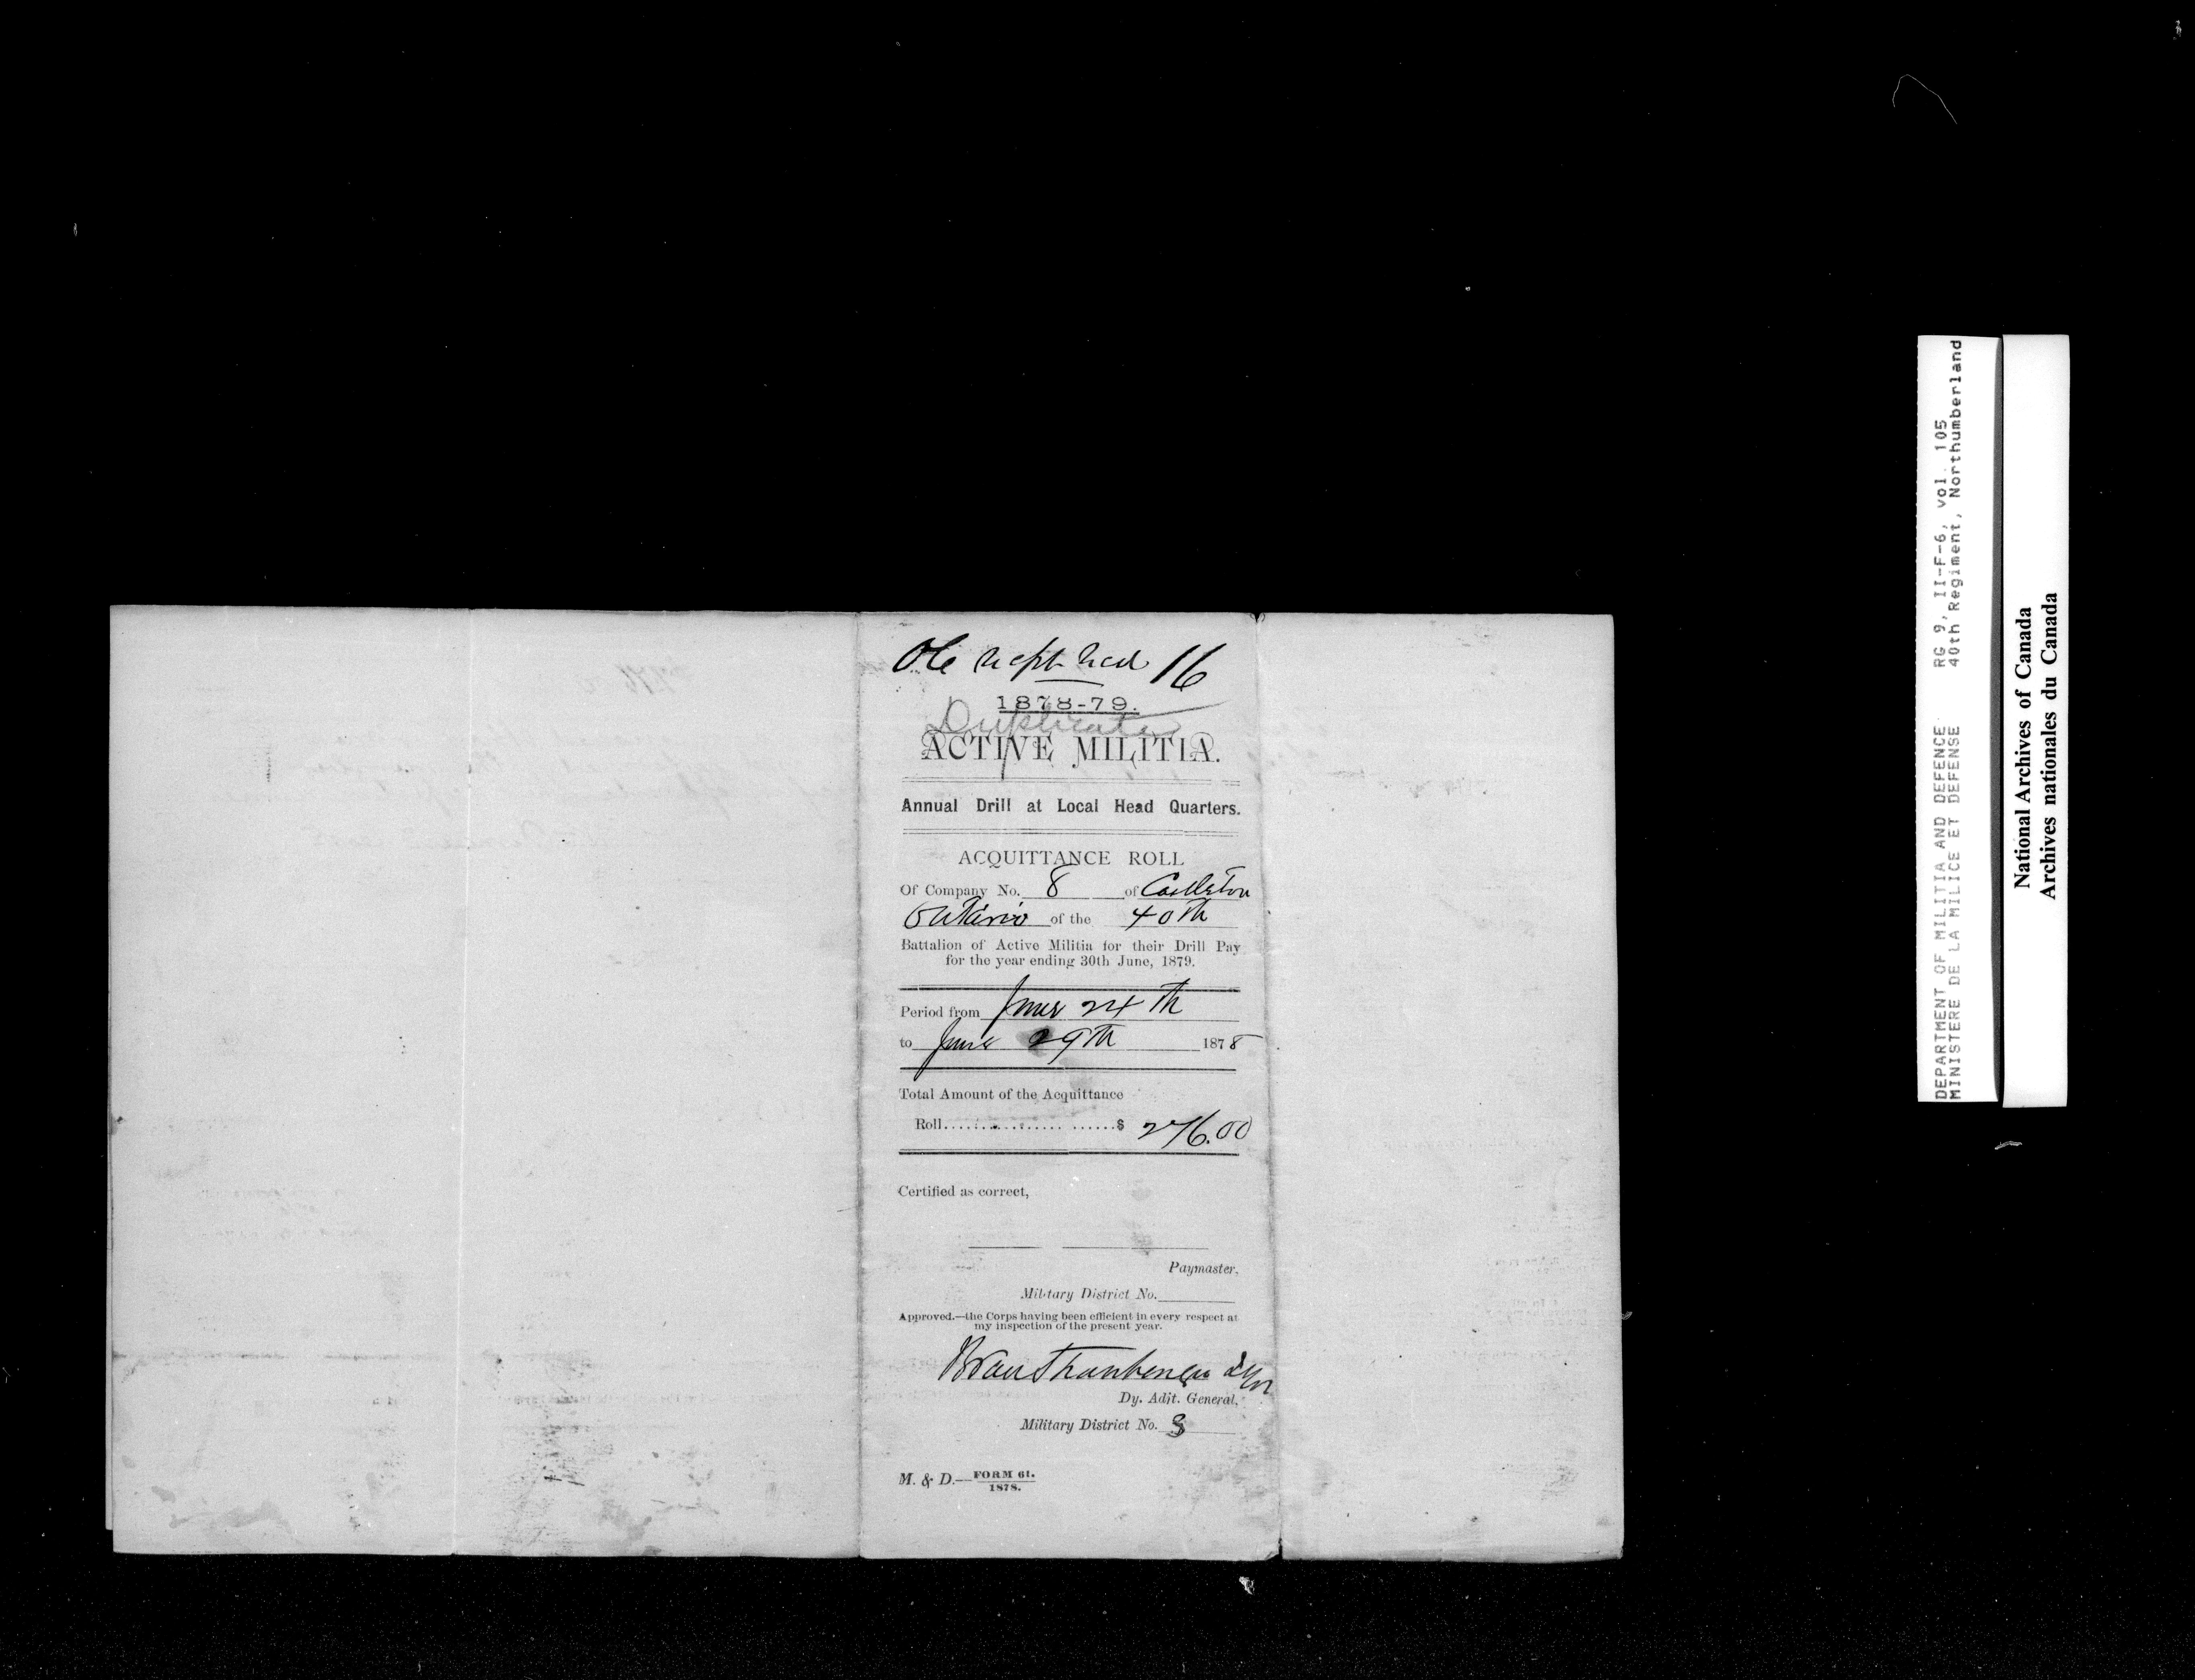 16
1878-79.
Duplicate
ACTIVE MILITIA.
Annual Drill at Local Head Quarters.
ACQUITTANCE ROLL
Of Company No. 8 of Castleton
Ontario of the 40th
Battalion of Active Militia for their Drill Pay
for the year ending 30th June, 1879.
Period from June 24th
to June 29th 1878
Total Amount of the Acquittance
Roll.......................$ 276.00
Certified as correct,
Paymaster,
Military District No.
Approved.—the Corps having been efficient in every respect at
my inspection of the present year.
Dy. Adjt. General,
Military District No. 3
M. & D.—FORM 61.
1878.
DEPARTMENT OF MILITIA AND DEFENCE RG 9, II-F-6, vol. 105
MINISTERE DE LA MILICE ET DEFENSE 40th Regiment, Northumberland
National Archives of Canada
Archives nationales du Canada